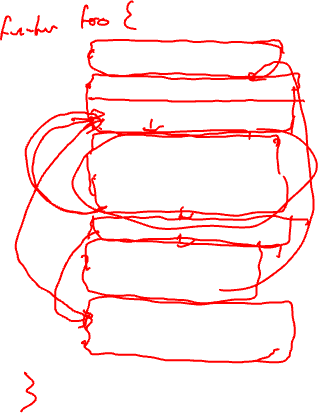 function foo {
}